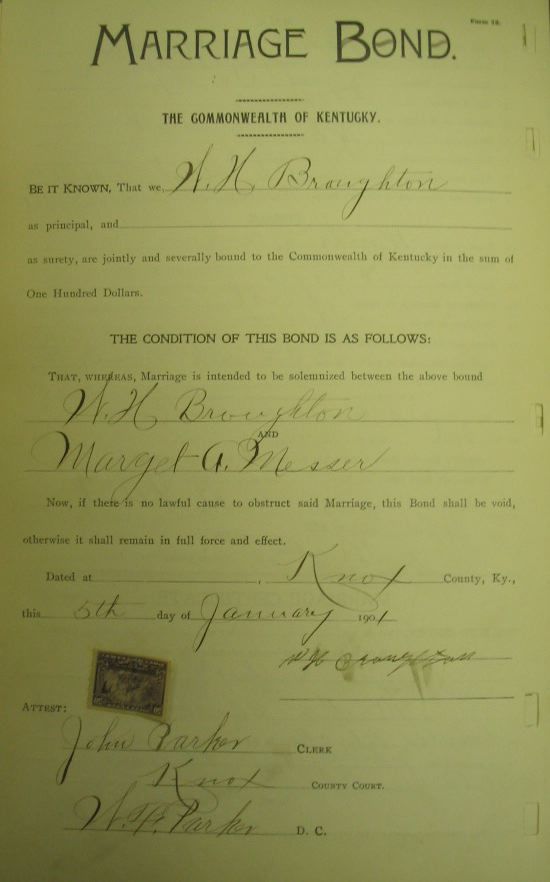 Form 18.
MARRIAGE BOND.
THE COMMONWEALTH OF KENTUCKY.
BE IT KNOWN, That we, W. H. Broughton
as principal, and
as surety, are jointly and severally bound to the Commonwealth of Kentucky in the sum of
One Hundred Dollars.
THE CONDITION OF THIS BOND IS AS FOLLOWS:
THAT, WHEREAS, Marriage is intended to be solemnized between the above bound
W. H. Broughton
AND
Marget A. Messer
Now, if there is no lawful cause to obstruct said Marriage, this Bond shall be void,
otherwise it shall remain in full force and effect.
Dated at Knox County, Ky.,
this 5th day of January 1901
W H Broughton
ATTEST:
John Parker CLERK
Knox COUNTY COURT.
W. F. Parker D. C.